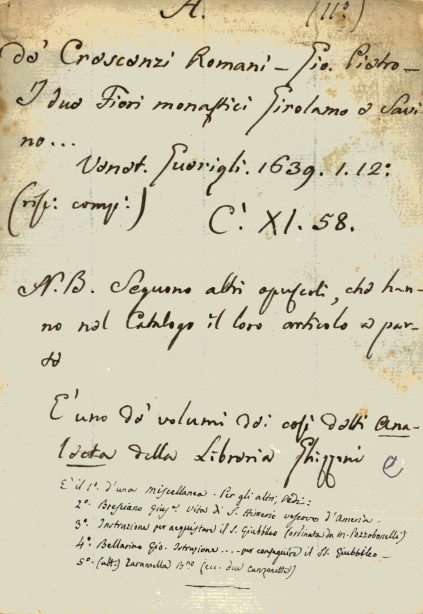 A. (11º)
de' Crescenzi Romani - Gio. Pietro -
I due Fiori monastici Girolamo e Savi
no...
Venet. Guerigli. 1639. 1. 12:
(risp: comp:) C: XI. 58.
N.B. Seguono altri opuscoli, che han-
no nel Catalogo il loro articolo a par-
te
E' uno de' volumi dei così detti Ana-
lecta della Libreria Ghizzoni
E' il 1º. d'una miscellanea - Per gli altri, Vedi:
2º. Bresciano Gius. Vita di S. Himerio vescovo d'Amelia -
3º. Instrazione per acquistare il S. Giubbileo (ordinata da M. Pozzobonelli)
4º. Bellarino Gio. Istruzione .... per conseguire il SS. Giubbileo -
5º. (ult) Taramella B.no (ecc. due canzonette)